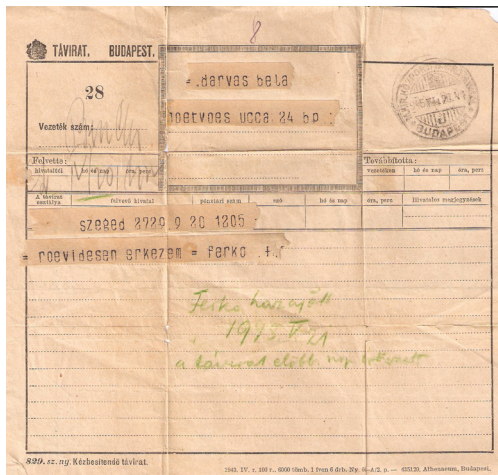 8
TÁVIRAT. BUDAPEST.
28
Vezeték szám:
=.darvas bela
eoetvoes ucca 24 bp.
BUDAPEST
Felvette:
Továbbította:
hivataltól
hó és nap
óra, perc
vezetéken
hó és nap
óra, perc
A távirat osztálya
felvevő hivatal
pénztári szám
szó
hó és nap
óra, perc
Hivatalos megjegyzések
szeged 2729 9 20 1205
= roevidesen erkezem = ferko .+.
Ferkó hazajött
1945 V. 21
a távirat előbb
829. sz. ny. Kézbesítendő távirat.
1943. IV. r. 100 r., 6000 tömb. 1 íven 6 drb. Ny. 6—A/2. p. — Athenaeum, Budapest.